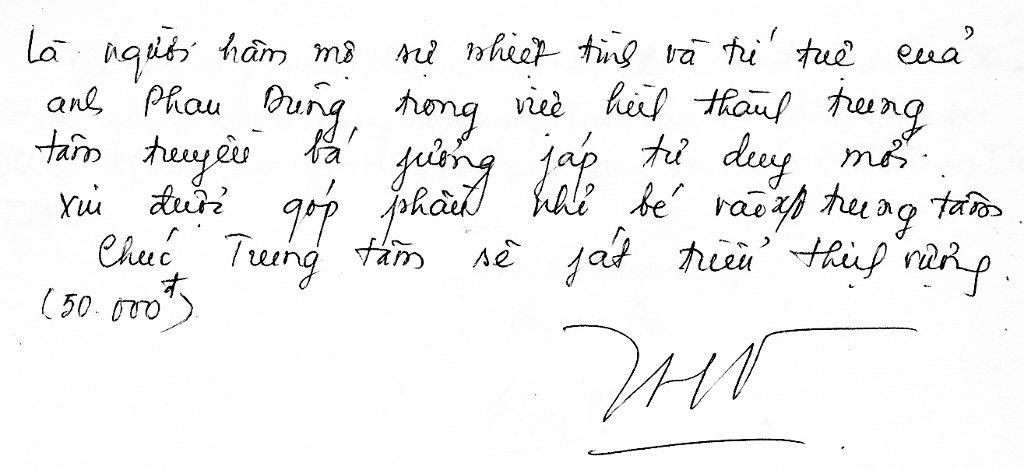 Là người hâm mộ sự nhiệt tình và trí tuệ của
anh Phan Dũng trong việc hình thành trung
tâm truyền bá phương pháp tư duy mới.
Xin được góp phần nhỏ bé vào trung tâm
Chúc Trung tâm sẽ phát triển thịnh vượng.
(50.000đ)